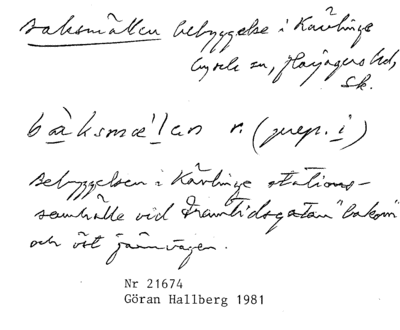 Baksmällen bebyggelse i Kävlinge
sn,
Sk.
bàksmæ`lan n. (prep. i)
Bebyggelsen i Kävlinge stations-
samhälle vid Framtidsgatan "bakom"
och öst järnvägen.
Nr 21674
Göran Hallberg 1981